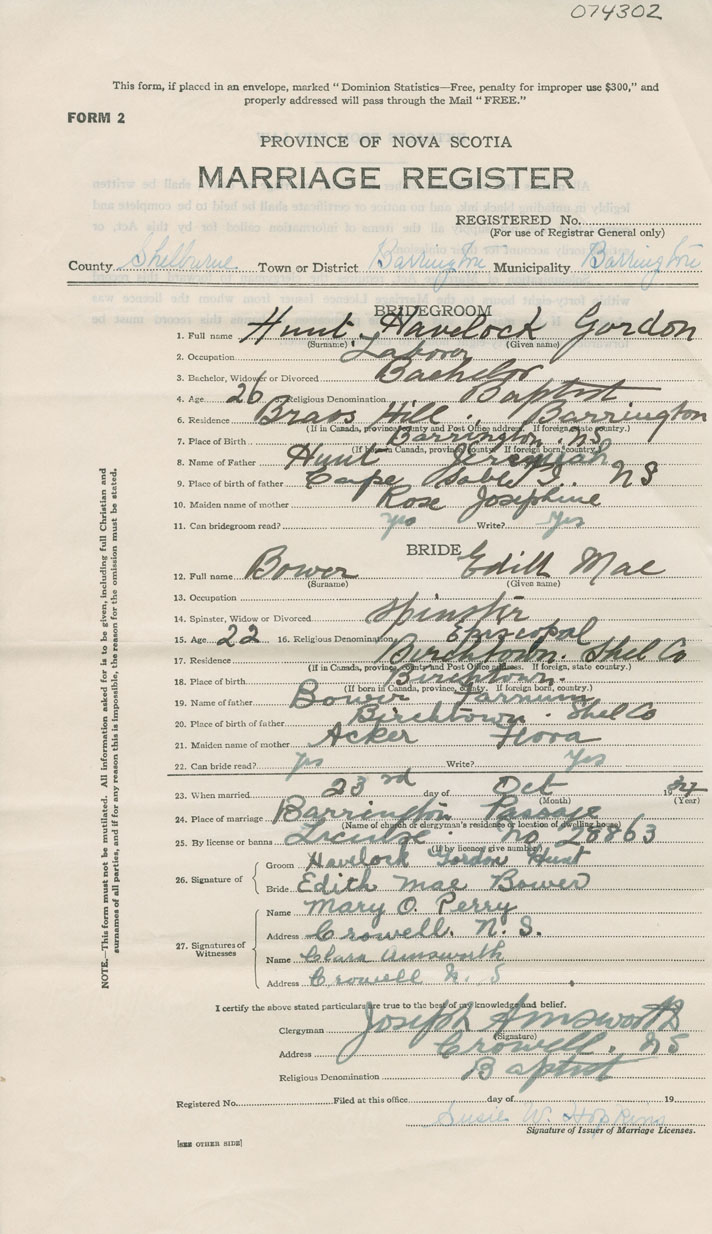 074302
This form, if placed in an envelope, marked "Dominion Statistics—Free, penalty for improper use $300," and
properly addressed will pass through the Mail "FREE."
FORM 2
PROVINCE OF NOVA SCOTIA
MARRIAGE REGISTER
REGISTERED No.
(For use of Registrar General only)
County Shelburne Town or District Barrington Municipality Barrington
BRIDEGROOM
1. Full name Hunt, Havelock Gordon
(Surname) (Given name)
2. Occupation Labor
3. Bachelor, Widower or Divorced Bachelor
4. Age 26 5. Religious Denomination Baptist
6. Residence Hill. Barrington
(If in Canada, province, county and Post Office address. If foreign, state country.)
7. Place of Birth Barrington. NS
(If born in Canada, province, county. If foreign born, country.)
8. Name of Father Hunt Jeremiah
9. Place of birth of father Cape Sable I. NS
10. Maiden name of mother Rose Josephine
11. Can bridegroom read? yes Write? Yes
BRIDE
12. Full name Bower Edith Mae
(Surname) (Given name)
13. Occupation
14. Spinster, Widow or Divorced Spinster
15. Age 22 16. Religious Denomination Episcopal
17. Residence Birchtown. Shel Co
(If in Canada, province, county and Post Office address. If foreign, state country.)
18. Place of birth Birchtown.
(If born in Canada, province, county. If foreign born, country.)
19. Name of father Bower
20. Place of birth of father Birchtown. Shel Co
21. Maiden name of mother Acker Flora
22. Can bride read? yes Write? Yes
23. When married 23rd day of Oct 19
(Month) (Year)
24. Place of marriage Barrington Passage
(Name of church or clergyman's residence or location of dwelling house)
25. By license or banns no 28863
(If by licence, give number)
26. Signature of Groom Havelock Gordon Hunt
Bride Edith Mae Bower
27. Signatures of Witnesses Name Mary O. Perry
Address Crowell. N. S.
Name Clara Amsworth
Address Crowell N. S
I certify the above stated particulars are true to the best of my knowledge and belief.
Clergyman Joseph Amsworth
(Signature)
Address Crowell. NS
Religious Denomination Baptist
Registered No. Filed at this office day of 19
Susie W. Hopkins
Signature of Issuer of Marriage Licenses.
[SEE OTHER SIDE]
NOTE.—This form must not be mutilated. All information asked for is to be given, including full Christian and
surnames of all parties, and if for any reason this is impossible, the reason for the omission must be stated.